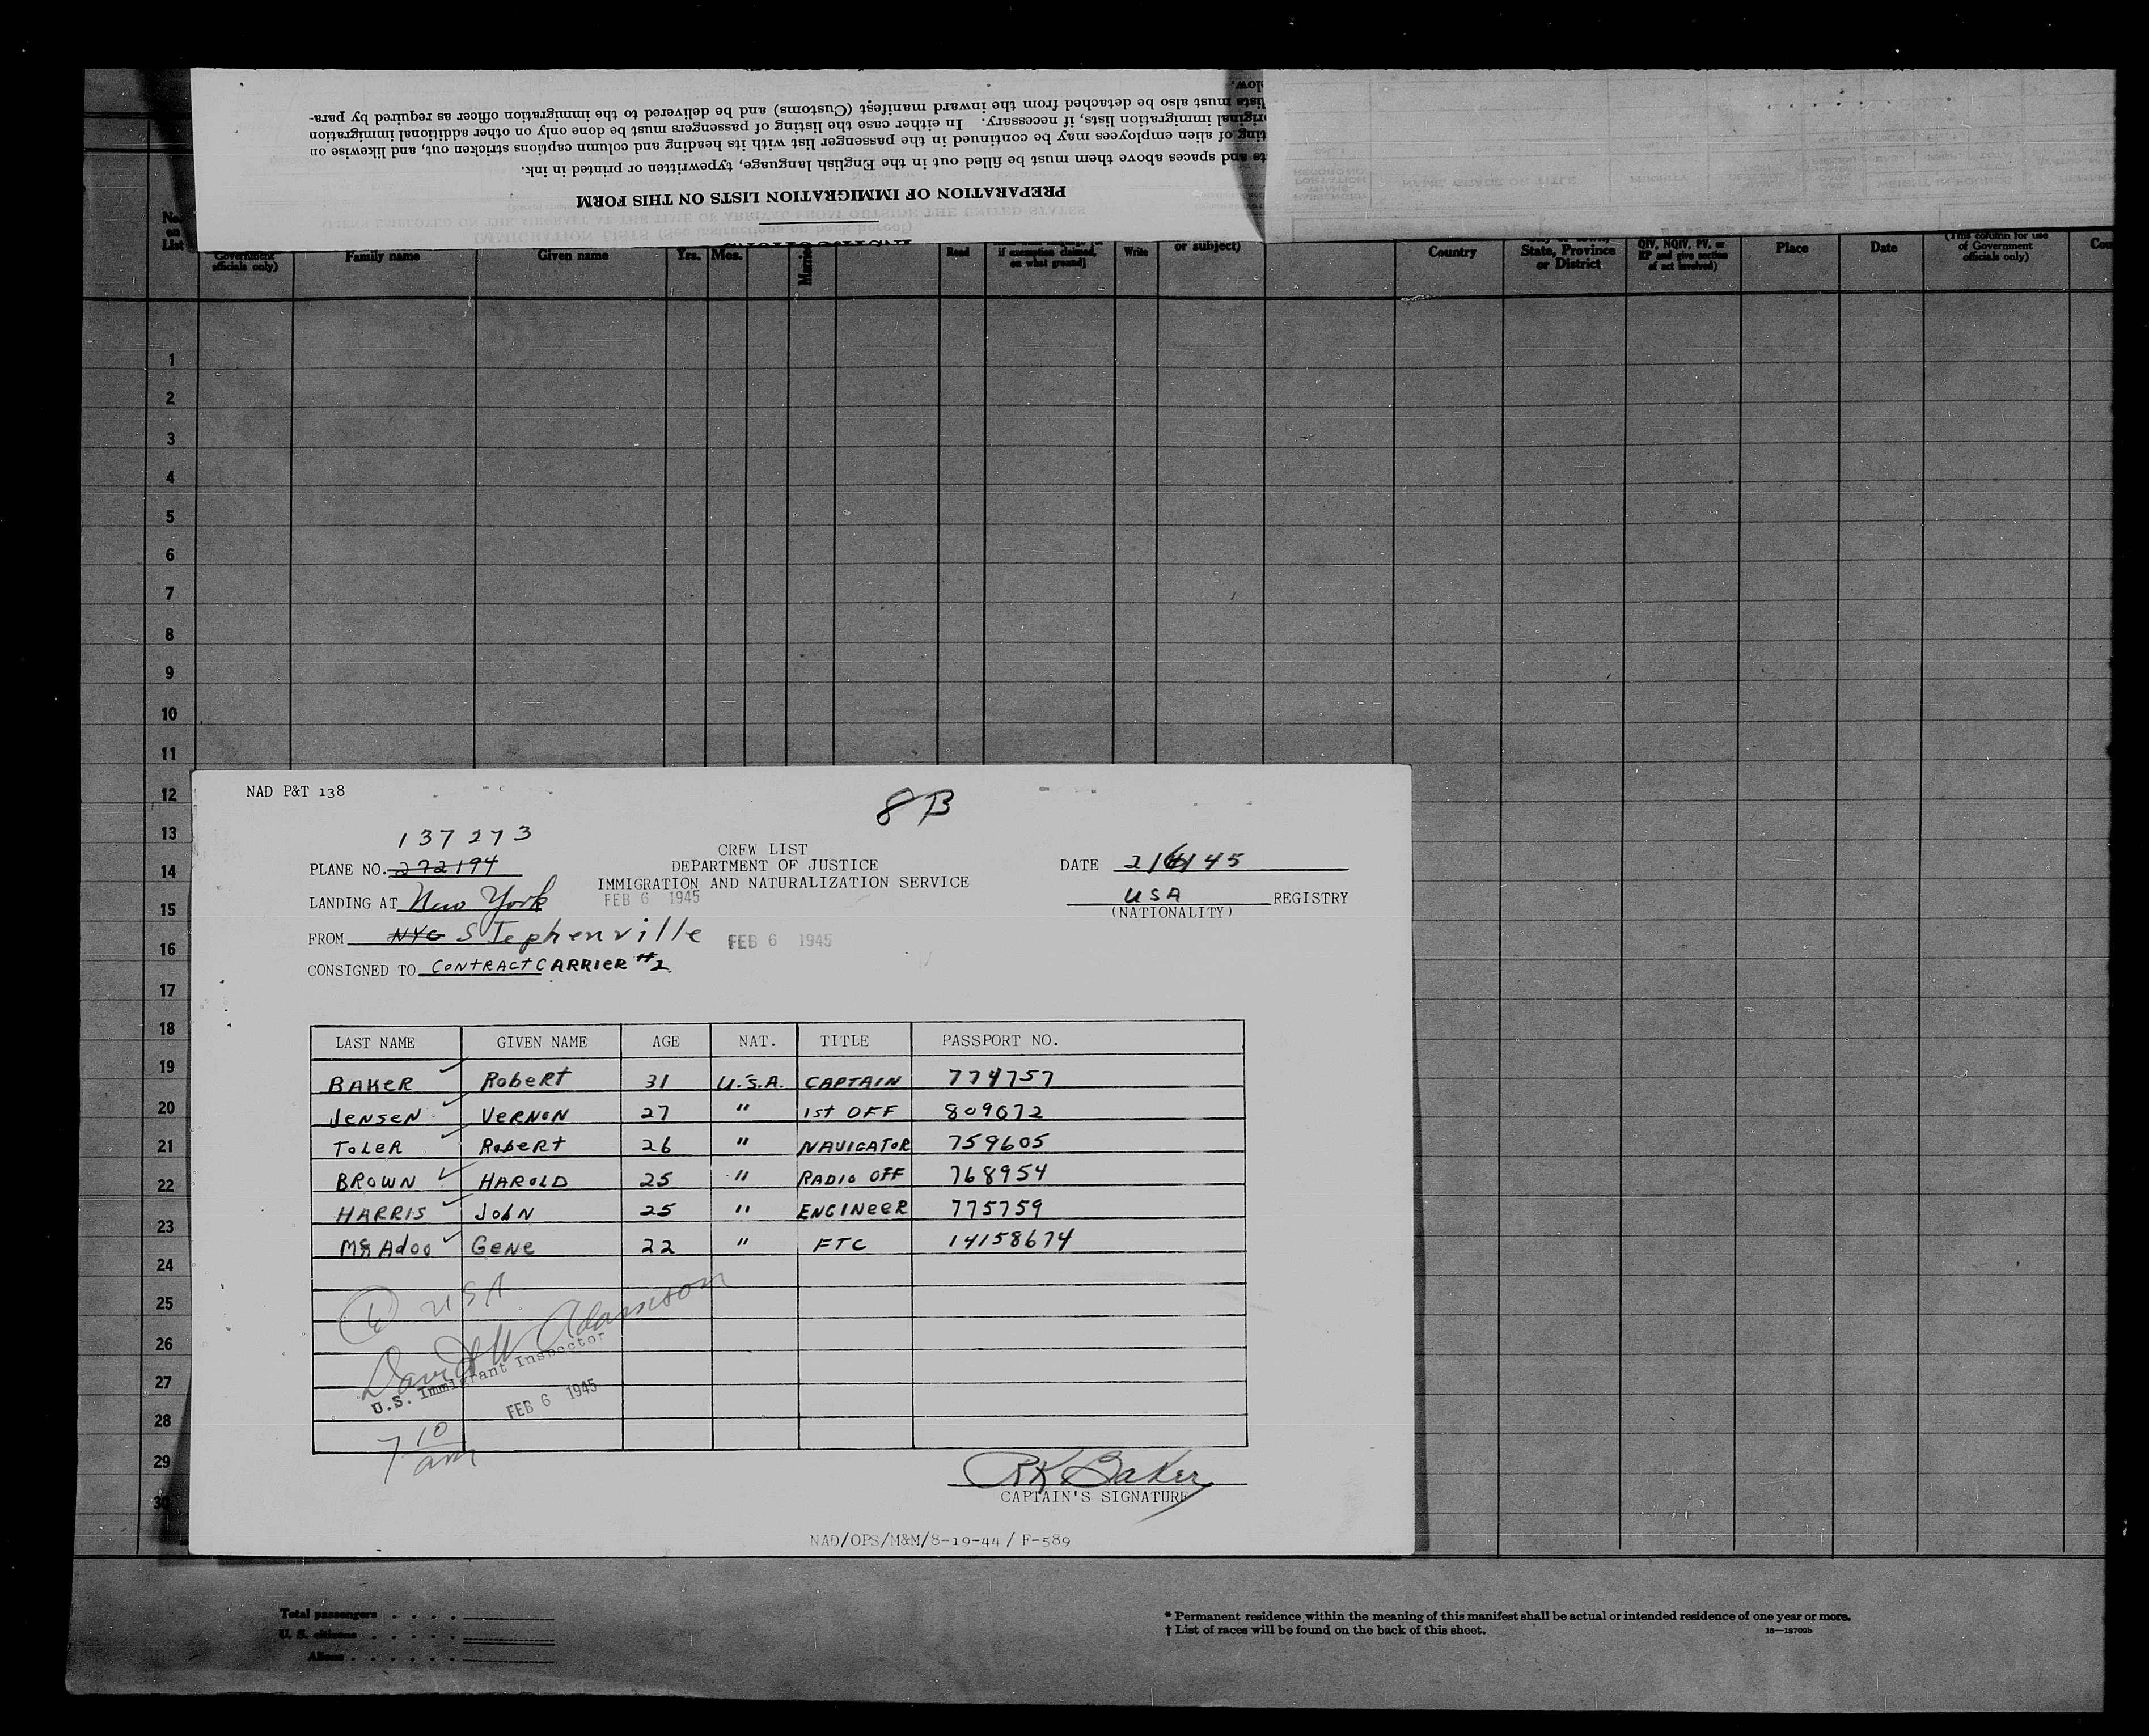 low.
lists must also be detached from the inward manifest (Customs) and be delivered to the immigration officer as required by para-
original immigration lists, if necessary. In either case the listing of passengers must be done only on other additional immigration
ting of alien employees may be continued in the passenger list with its heading and column captions stricken out, and likewise on
ts and spaces above them must be filled out in the English language, typewritten or printed in ink.
PREPARATION OF IMMIGRATION LISTS ON THIS FORM
IMMIGRATION LISTS (See instructions on back hereof)
No. on List
Government officials only)
Family name
Given name
Yrs.
Mos.
Married
Read
if exemption claimed, on what ground]
Write
or subject)
Country
State, Province or District
QIV, NQIV, PV, or RP and give section of act involved)
Place
Date
(This column for use of Government officials only)
Cou
1
2
3
4
5
6
7
8
9
10
11
12
13
14
15
16
17
18
19
20
21
22
23
24
25
26
27
28
29
30
NAD P&T 138
8B
137273
CREW LIST
PLANE NO. 272194
DEPARTMENT OF JUSTICE
DATE 2/6/45
IMMIGRATION AND NATURALIZATION SERVICE
LANDING AT New York
FEB 6 1945
USA REGISTRY
(NATIONALITY)
FROM NYC STephenville
FEB 6 1945
CONSIGNED TO CONTRACT CARRIER #2
LAST NAME GIVEN NAME AGE NAT. TITLE PASSPORT NO.
BAKER Robert 31 U.S.A. CAPTAIN 774757
JENSEN VERNON 27 " 1st OFF 809672
TOLER Robert 26 " NAVIGATOR 759605
BROWN HAROLD 25 " RADIO OFF 768954
HARRIS JOHN 25 " ENGINEER 775759
McAdoo GENE 22 " FTC 14158674
6 USA
David W Adamson
U.S. Immigrant Inspector
FEB 6 1945
7 10 am
RK Baker
CAPTAIN'S SIGNATURE
NAD/OPS/M&M/8-19-44/ F-589
Total passengers . . . .
U. S. citizens . . . . .
Aliens . . . . . .
* Permanent residence within the meaning of this manifest shall be actual or intended residence of one year or more.
† List of races will be found on the back of this sheet.
16—18709b